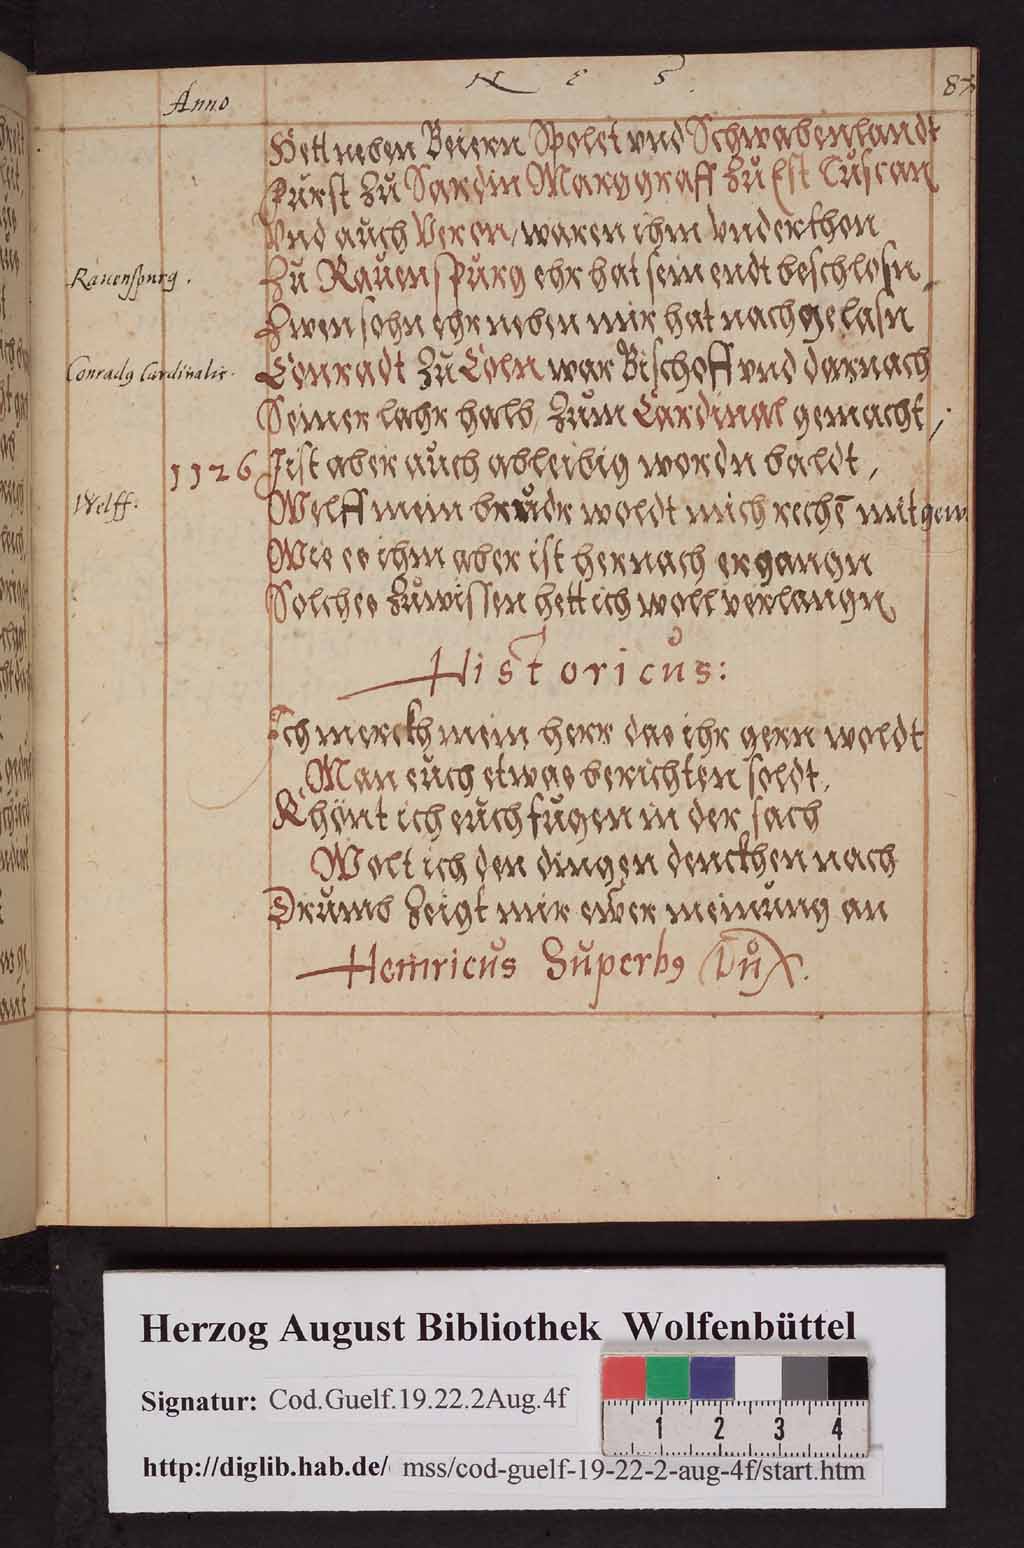 Anno
N E S
87
Hett neben Beiern Spolet vnd Schwabenlandt
Fürst Zů Sardin Marggraff Zů Est Tůscan
Vnd aůch Veron, waren ihm vnderthon
Rauenspurg.
Zů Raůenspůrg ehr hat sein endt beschlosn,
Zwen sohn ehr neben mir hat nachgelasn
Conradꝯ Cardinalis.
Conradt Zů Cöln war Bischoff vnd darnach
Seiner lahr halb, Zům Cardinal gemacht,
1126 Jst aber aůch ableibig wordn baldt,
Welff.
Welff mein brůdr woldt mich rechē mit gew
Wie es ihm aber ist hernach ergangn
Solches Zůwissen hett ich woll verlangn
Historicůs:
Ich merckh mein herr das ihr gern woldt
Man eůch etwas berichten soldt,
Khönt ich eůch fůgen in der sach
Wolt ich den dingen denckhen nach
Drůmb Zeigt mir ewer meinůng an
Heinricůs Sůperbꝯ Důx.
Herzog August Bibliothek Wolfenbüttel
Signatur: Cod.Guelf.19.22.2Aug.4f
1 2 3 4
http://diglib.hab.de/ mss/cod-guelf-19-22-2-aug-4f/start.htm